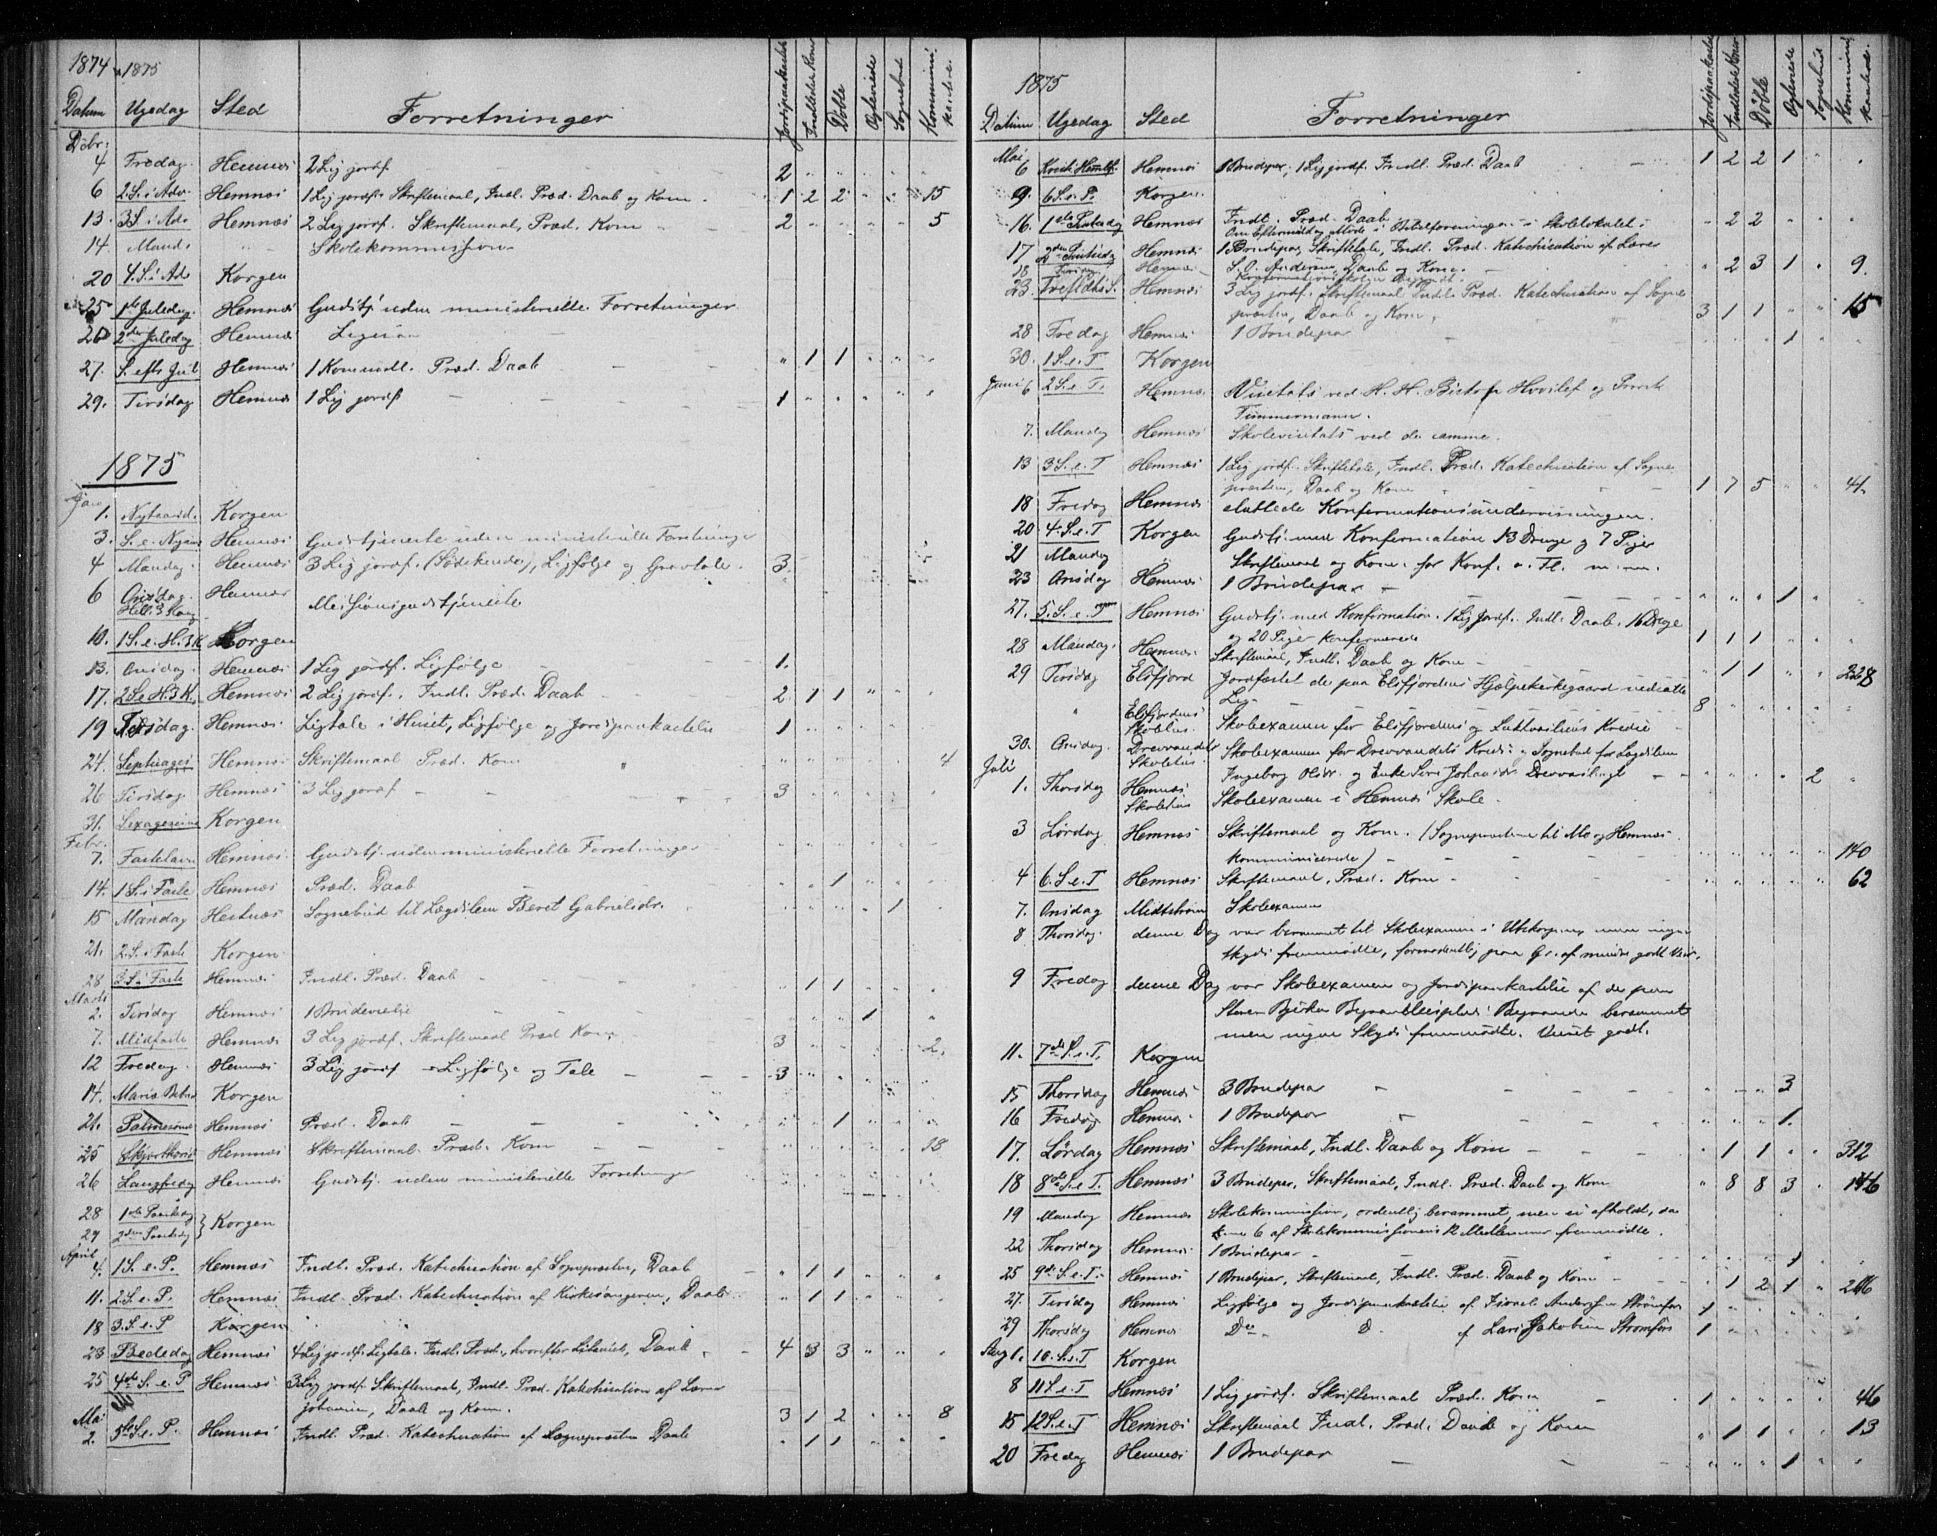 1874 & 1875
Datum Ugedag Sted Forretninger Jordspaakastede Indledede Koner Døbte Ægteviede Sognebud Kommunikantere
Dcbr:
4 Fredag Hemnæs 2 Lig jordf. 2
6 2 S. i Adv. Hemnæs 1 Lig jordf. Skriftemaal, Indl. Præd. Daab og Kom. 1 2 2 15
13 3 S. i Adv Hemnæs 2 Lig jordf. Skriftemaal, Præd. Kom 2 5
14 Mand. Skolekommission
20 4. S. i Ad Korgen
25 1ste Juledag Hemnæs Gudstj. uden ministerielle Forretninger
26 2den Juledag Hemnæs
27. S. eft. Jul Hemnæs 1 Kone indl. Præd. Daab 1 1
29. Tirsdag Hemnæs 1 Lig jordf 1
1875
Jan
1. Nytaarsd. Korgen
3. S. e. Nyaar Hemnæs Gudstjeneste uden ministerielle Forretninger
4 Mandag Hemnæs 3 Lig jordf. (Sødskende), Ligfølge og Gravtale. 3
6 Onsdag Hell. 3 Kong Hemnæs Missionsgudstjeneste
10. 1 S. e. H. 3 K Korgen
13. Onsdag Hemnæs 1 Lig jordf. Ligfølge 1.
17. 2 S e H. 3 K. Hemnæs 2 Lig jordf. Indl. Præd. Daab 2 1 1
19 Tirsdag. Hemnæs Ligtale i Huset, Ligfølge og Jordspaakastelse 1
24. Septuages Hemnæs Skriftemaal Præd. Kom 4
26 Tirsdag Hemnæs 3 Lig jordf 3
31. Sexagesima Korgen
Febr.
7. Fastelavn Hemnæs Gudstj. uden ministerielle Forretninger
14. 1 S. i Faste Hemnæs Præd. Daab 1
15 Mandag Hestnæs Sognebud til Lægdslem Beret Gabrielsdr. 1
21. 2 S. i Faste Korgen
28 3 S. i Faste Hemnæs Indl. Præd. Daab 1 1
Marts
2. Tirsdag Hemnæs 1 Brudevielse 1
7. Midfaste Hemnæs 3 Lig jordf. Skriftemaal Præd Kom 3 2.
12 Fredag Hemnæs 3 Lig jordf Ligfølge og Tale 3
14. Mariæ Beb. Korgen
21. Palmesønd Hemnæs Præd. Daab 1
25 Skjærthorsd Hemnæs Skriftemaal. Præd. Kom 18
26 Langfredag Hemnæs Gudstj. uden ministerielle Forretninger
28 1ste Paaskedag } Korgen
29 2den Paaskedag
April
4. 1 S. e. P. Hemnæs Indl. Præd. Katechisation af Sognepræsten, Daab 1 1
11. 2 S. e. P. Hemnæs Indl. Præd. Katechisation af Kirkesangeren, Daab 1 1
18 3. S. e. P Korgen
23 Bededag Hemnæs 4 Lig jordf. Ligtale. Indl. Præd., hvorefter Litaniet, Daab 4 3 3
25 4de S. e. P Hemnæs 3 Lig jordf. Skriftemaal, Indl. Præd. Katechisation af Lærer
Johansen, Daab og Kom. 3 1 2 8
Mai
2. 5te S. e. P. Hemnæs Indl. Præd. Katechisation af Sognepræsten Daab 1 1
1875
Datum Ugedag Sted Forretninger Jordspaakastede Indledede Koner Døbte Ægteviede Sognebud Kommunikantere
Mai
6 Kristi Himlf. Hemnæs 1 Brudepar, 1 Lig jordf. Indl. Præd. Daab 1 2 2 1
9. 6 S. e. P. Korgen
16. 1ste Pintsedag Hemnæs Indl. Præd. Daab 2 2
Om Eftermiddag Møde i Bibelforeningen i Skolelokalet
17 2den Pintsedag Hemnæs 1 Brudepar, Skriftetale, Indl. Præd. Katechisation af Lærer
S. O. Andersen, Daab og Kom. 2 3 1 9.
18 Tirsdag Hemnæs Konfirmationsskolen begyndt
23. Trefoldhs S. Hemnæs 3 Lig jordf. Skriftemaal Indl. Præd. Katechisation af Sogne
præsten, Daab og Kom. 3 1 1 15
28 Fredag Hemnæs 1 Brudepar 1
30. 1 S. e. T Korgen
Juni 6 2 S. e. T. Hemnæs Visitats ved H. H. Biskop Hvoslef og Provst
Timmermann.
7. Mandag Hemnæs Skolevisitats ved de samme.
13 3 S. e. T Hemnæs 1 Lig jordf. Skriftetale, Indl. Præd. Katechisation af Sogne
præsten, Daab og Kom 1 7 5 41.
18 Fredag Hemnæs sluttede Konfirmationsundervisningen.
20 4. S. e. T Korgen Gudstj. med Konfirmation 13 Drenge og 7 Piger
21 Mandag Skriftemaal og Kom. for Konf. o. Fl. m. m.
23 Onsdag Hemnæs 1 Brudepar 1
27. 5. S. e. Hemnæs Gudstj. med Konfirmation. 1 Lig jordf. Indl. Daab. 16 Drenge
og 20 Piger konfirmerede 1 1 1
28 Mandag. Hemnæs Skriftemaal, Indl. Daab og Kom 1 1 228
29 Tirsdag Elsfjord Jordfæstet de paa Elsfjordens Hjælpekirkegaard nedsatte
Lig 8
" Elsfjordens Skolehus Skoleexamen for Elsfjordens og Kreds
30. Onsdag. Drevvandets Skolehus. Skoleexamen for Drevvandets Kreds og Sognebud for Lægdslem
Ingeborg Olsdr. og Enke Johansdr. 2
Juli
1. Thorsdag Hemnæs Skolehus Skoleexamen i Hemnæs Skole.
3 Lørdag Hemnæs Skriftemaal og Kom. (Sognepræsterne til Mo og Hemnæs
kommunicerede) 140
4 6. S. e. T Hemnæs Skriftemaal. Præd. Kom 62
7. Onsdag Midtstrøm Skoleexamen
8 Thorsdag. denne Dag var berammet til Skoleexamen i men ingen
Skyds fremmødte, formodentlig paa Gr. af mindre godt Veir.
9 Fredag denne Dag var Skoleexamen og Jordspaakastelse af de paa
Bjerken Begravelsesplads Begravede berammet
men ingen Skyds fremmødte. Veiret godt.
11. 7de S. e. T. Korgen
15 Thorsdag Hemnæs 3 Brudepar 3
16 Fredag Hemnæs 1 Brudepar 1.
17. Lørdag Hemnæs Skriftemaal, Indl. Daab og Kom 1 1 312
18 8de S. e T. Hemnæs 3 Brudepar, Skriftemaal, Indl. Præd. Daab og Kom 8 8 3 146
19 Mandag Hemnæs Skolekommission, ordentlig berammet, men ei afholdt, da
6 af Skolekommissionens 12 Medlemmer fremmødte.
22 Thorsdag Hemnæs 1 Brudepar 1
25 9de S. e. T. Hemnæs 1 Brudepar, Skriftemaal, Indl. Præd. Daab og Kom 1 2 1 246
27. Tirsdag Hemnæs Ligfølge og Jordspaakastelse af Andersen Strømfors 1
29 Thorsdag Hemnæs Do. D. af Lars Jakobsen Strømfors 1
Aug 1. 10. S. e. T Korgen
8 11 S. e. T Hemnæs 1 Lig jordf. Skriftemaal Præd. Kom 1 46
15 12 S. e. T Hemnæs Skriftemaal Indl. Præd. Daab og Kom 1 1 13
20 Fredag Hemnæs 1 Brudepar 1